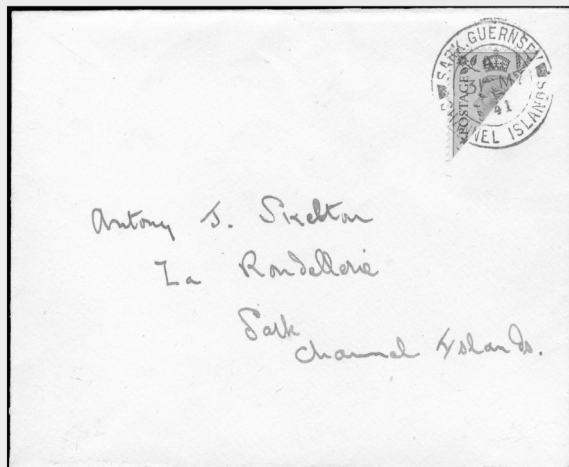 SARK. GUERNSEY
31 MY
41
CHANNEL ISLANDS
POSTAGE
Antony J. Skelton
La Rondellerie
Sark
Channel Islands.